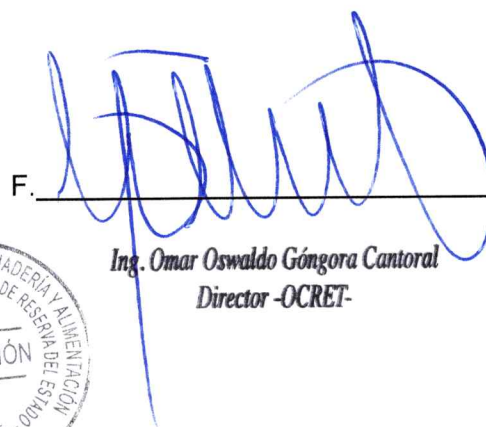 F.
Ing. Omar Oswaldo Góngora Cantoral
Director -OCRET-
ADERÍA Y ALIMENTACIÓN
DE RESERVA DEL ESTADO
IÓN